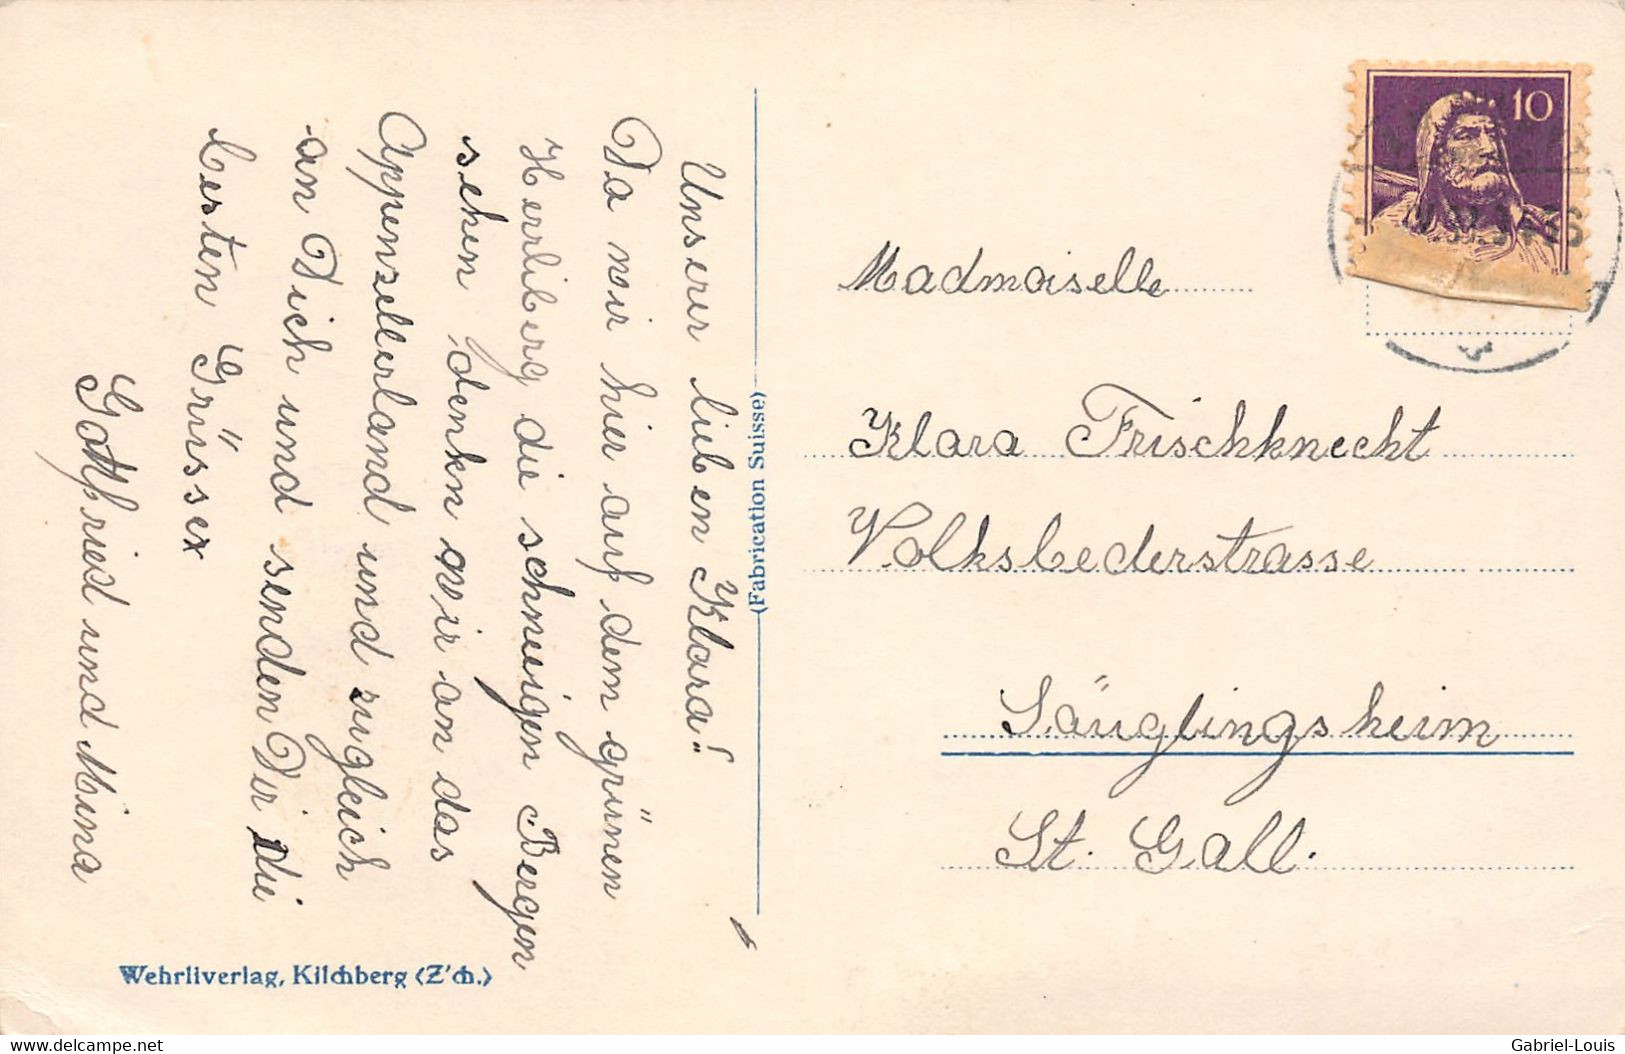 Unserer lieben Klara!
Da wir hier auf dem grünen
Herrliberg die schneeigen Bergen
sehen denken wir an das
Appenzellerland und zugleich
an Dich und senden Dir die
besten Grüssex
Gottfried und Mina
(Fabrication Suisse)
Wehrliverlag, Kilchberg (Z'ch.)
10
Madmoiselle
Klara Frischknecht
Volksbederstrasse
Säuglingsheim
St. Gall.
delcampe.net
Gabriel-Louis